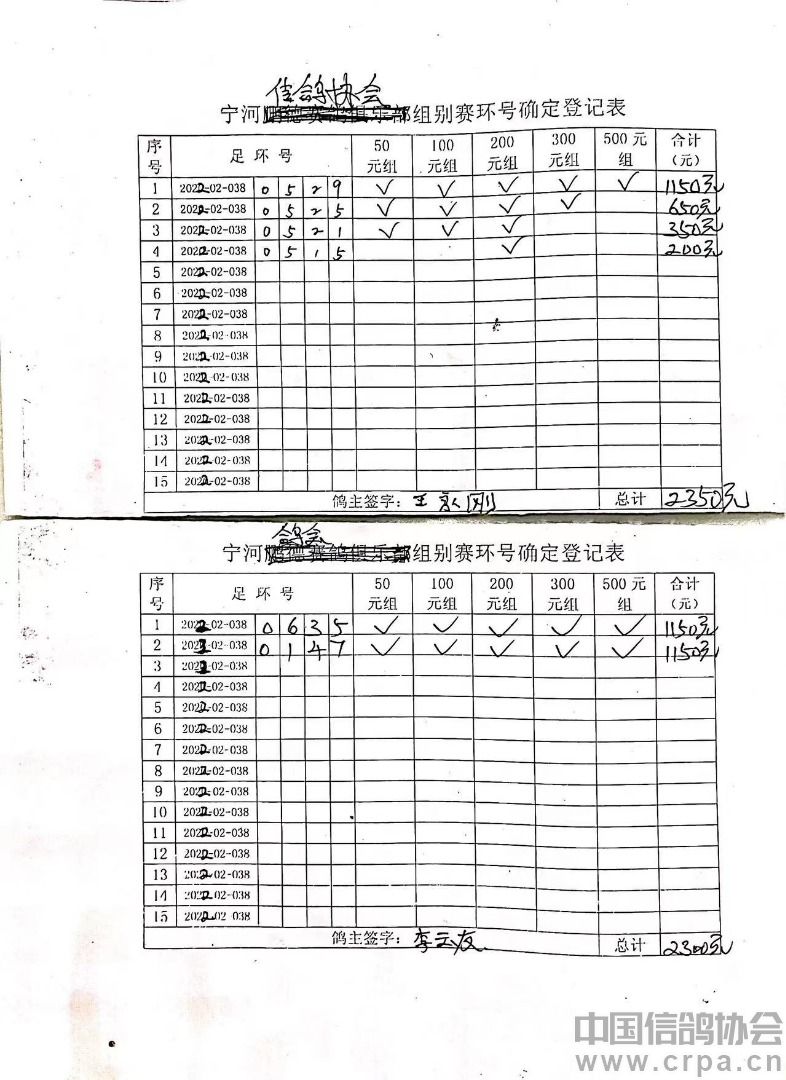 信鸽协会
宁河鹏德赛鸽俱乐部组别赛环号确定登记表
序号 足 环 号 50元组 100元组 200元组 300元组 500元组 合计(元)
1 2022-02-038 0 5 2 9 ✓ ✓ ✓ ✓ ✓ 1150元
2 2022-02-038 0 5 2 5 ✓ ✓ ✓ ✓ 650元
3 2022-02-038 0 5 2 1 ✓ ✓ ✓ 350元
4 2022-02-038 0 5 1 5 ✓ 200元
5 2022-02-038
6 2022-02-038
7 2022-02-038
8 2022-02-038
9 2022-02-038
10 2022-02-038
11 2022-02-038
12 2022-02-038
13 2022-02-038
14 2022-02-038
15 2022-02-038
鸽主签字: 王 刚 总计 2350元
鸽会
宁河鹏德赛鸽俱乐部组别赛环号确定登记表
序号 足 环 号 50元组 100元组 200元组 300元组 500元组 合计(元)
1 2022-02-038 0 6 3 5 ✓ ✓ ✓ ✓ ✓ 1150元
2 2022-02-038 0 1 4 7 ✓ ✓ ✓ ✓ ✓ 1150元
3 2022-02-038
4 2022-02-038
5 2022-02-038
6 2022-02-038
7 2022-02-038
8 2022-02-038
9 2022-02-038
10 2022-02-038
11 2022-02-038
12 2022-02-038
13 2022-02-038
14 2022-02-038
15 2022-02-038
鸽主签字: 李云友 总计 2300元
中国信鸽协会
www.crpa.cn